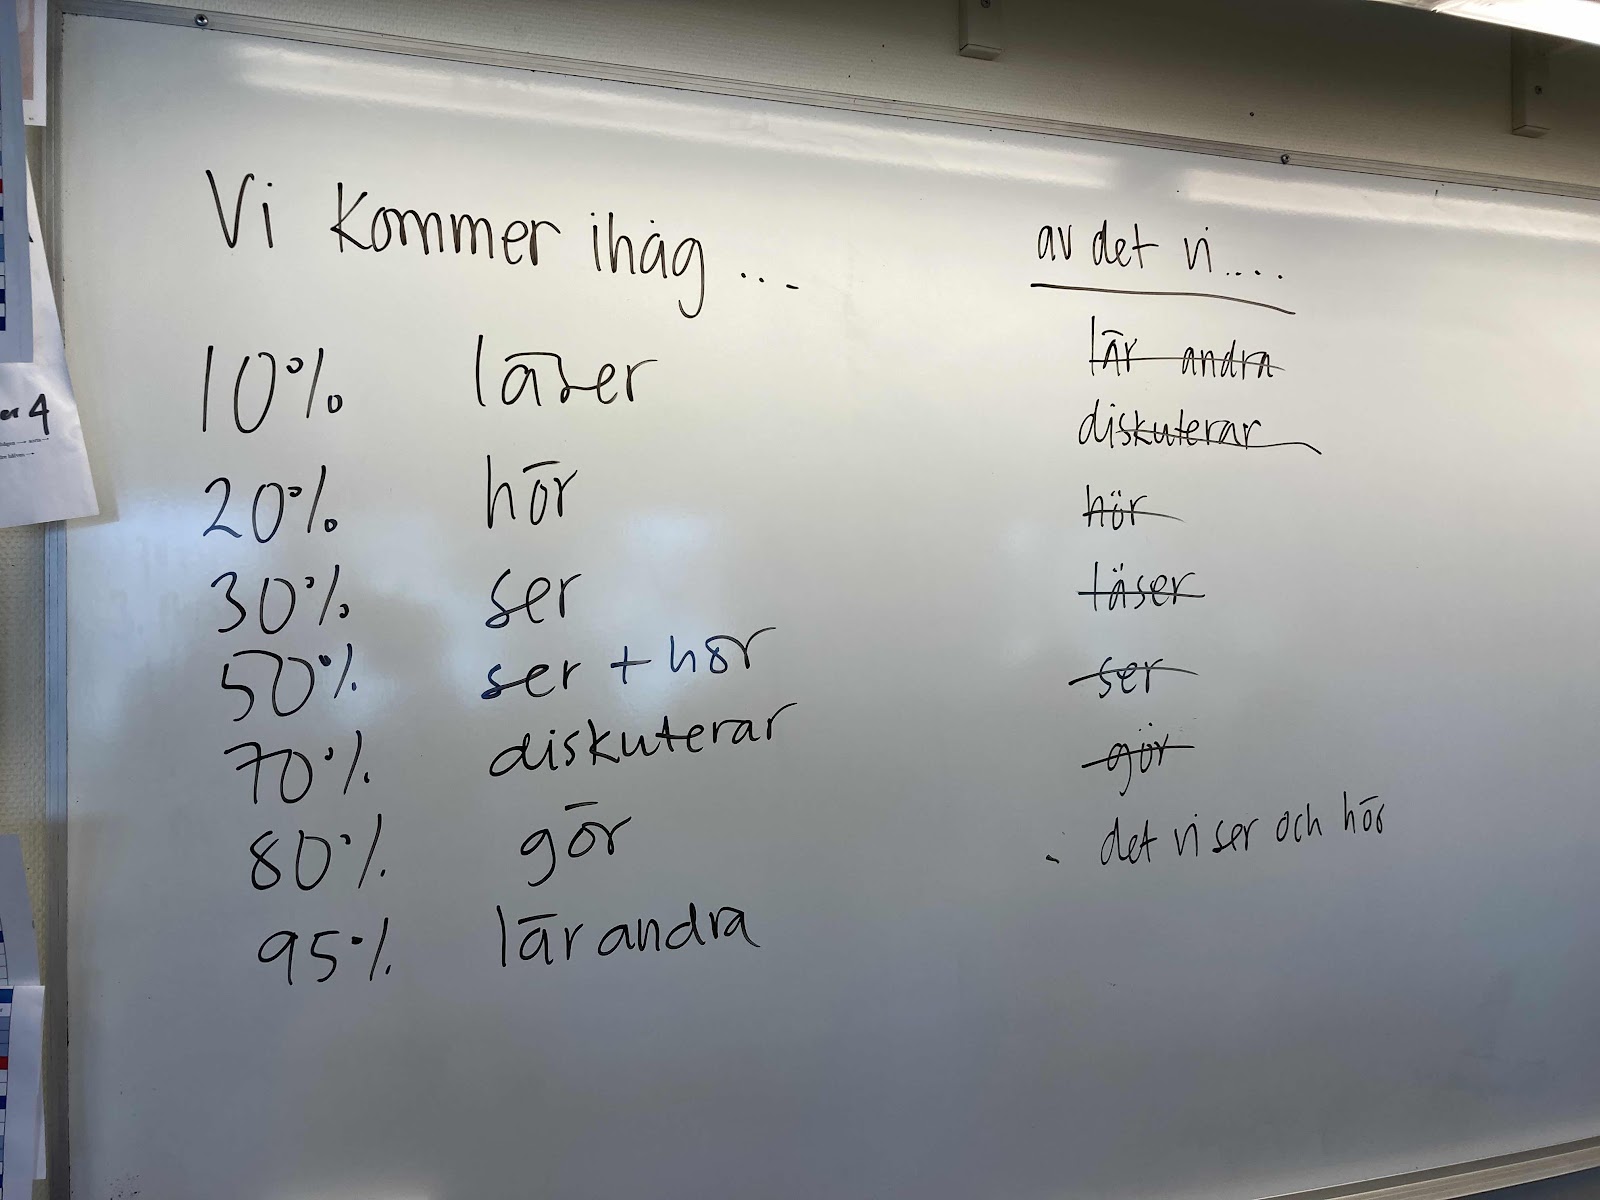 Vi kommer ihåg ...
10% läser
20% hör
30% ser
50% ser + hör
70% diskuterar
80% gör
95% lär andra
av det vi....
lär andra
diskuterar
hör
läser
ser
gör
det vi ser och hör
4